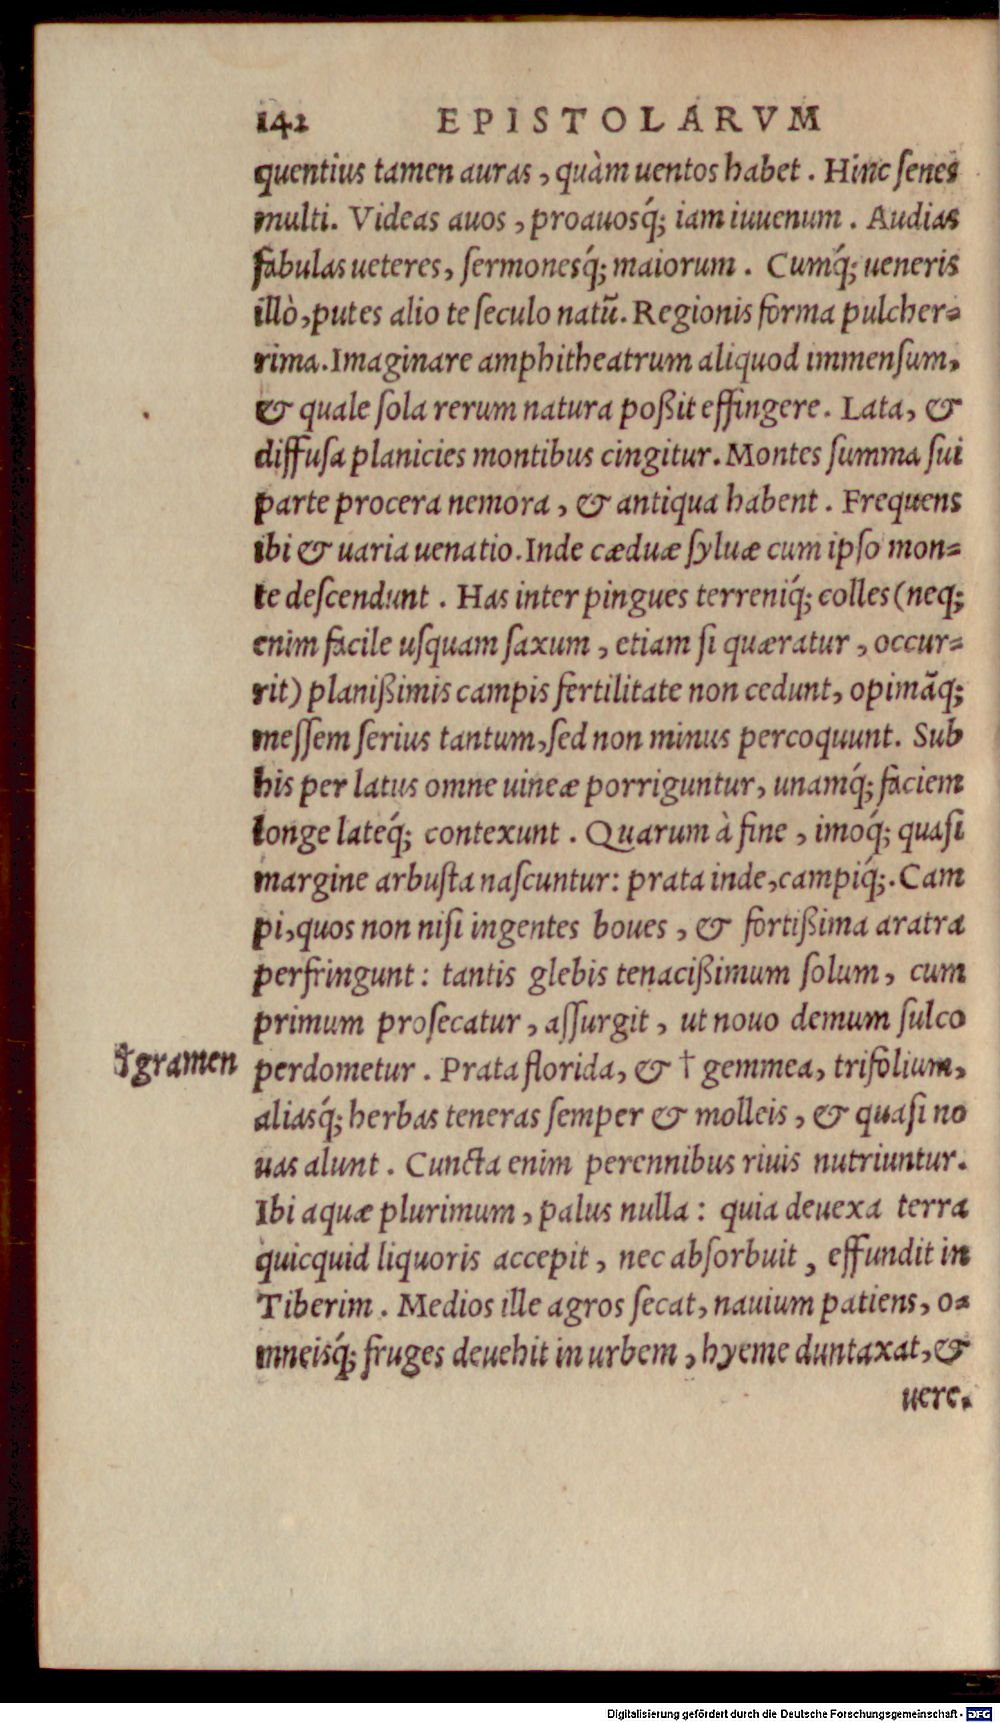 142 EPISTOLARVM
quentius tamen auras, quàm uentos habet. Hinc ſenes
multi. Videas auos, proauosq́; iam iuuenum. Audias
fabulas ueteres, ſermonesq́; maiorum. Cumq́; ueneris
illò, putes alio te ſeculo natũ. Regionis forma pulcher-
rima. Imaginare amphitheatrum aliquod immenſum,
& quale ſola rerum natura poßit effingere. Lata, &
diffuſa planicies montibus cingitur. Montes ſumma ſui
parte procera nemora, & antiqua habent. Frequens
ibi & uaria uenatio. Inde cæduæ ſyluæ cum ipſo mon-
te deſcendunt. Has inter pingues terreniq́; colles (neq;
enim facile uſquam ſaxum, etiam ſi quæratur, occur-
rit) planißimis campis fertilitate non cedunt, opimãq;
meſſem ſerius tantum, ſed non minus percoquunt. Sub
his per latus omne uineæ porriguntur, unamq́; faciem
longe lateq́; contexunt. Quarum à fine, imoq́; quaſi
margine arbuſta naſcuntur: prata inde, campiq́;. Cam
pi, quos non niſi ingentes boues, & fortißima aratra
perfringunt: tantis glebis tenacißimum ſolum, cum
primum proſecatur, aſſurgit, ut nouo demum ſulco
†gramen perdometur. Prata florida, & † gemmea, trifolium,
aliasq́; herbas teneras ſemper & molleis, & quaſi no
uas alunt. Cuncta enim perennibus riuis nutriuntur.
Ibi aquæ plurimum, palus nulla: quia deuexa terra
quicquid liquoris accepit, nec abſorbuit, effundit in
Tiberim. Medios ille agros ſecat, nauium patiens, o-
mneisq́; fruges deuehit in urbem, hyeme duntaxat, &
uere.
Digitalisierung gefördert durch die Deutsche Forschungsgemeinschaft - DFG